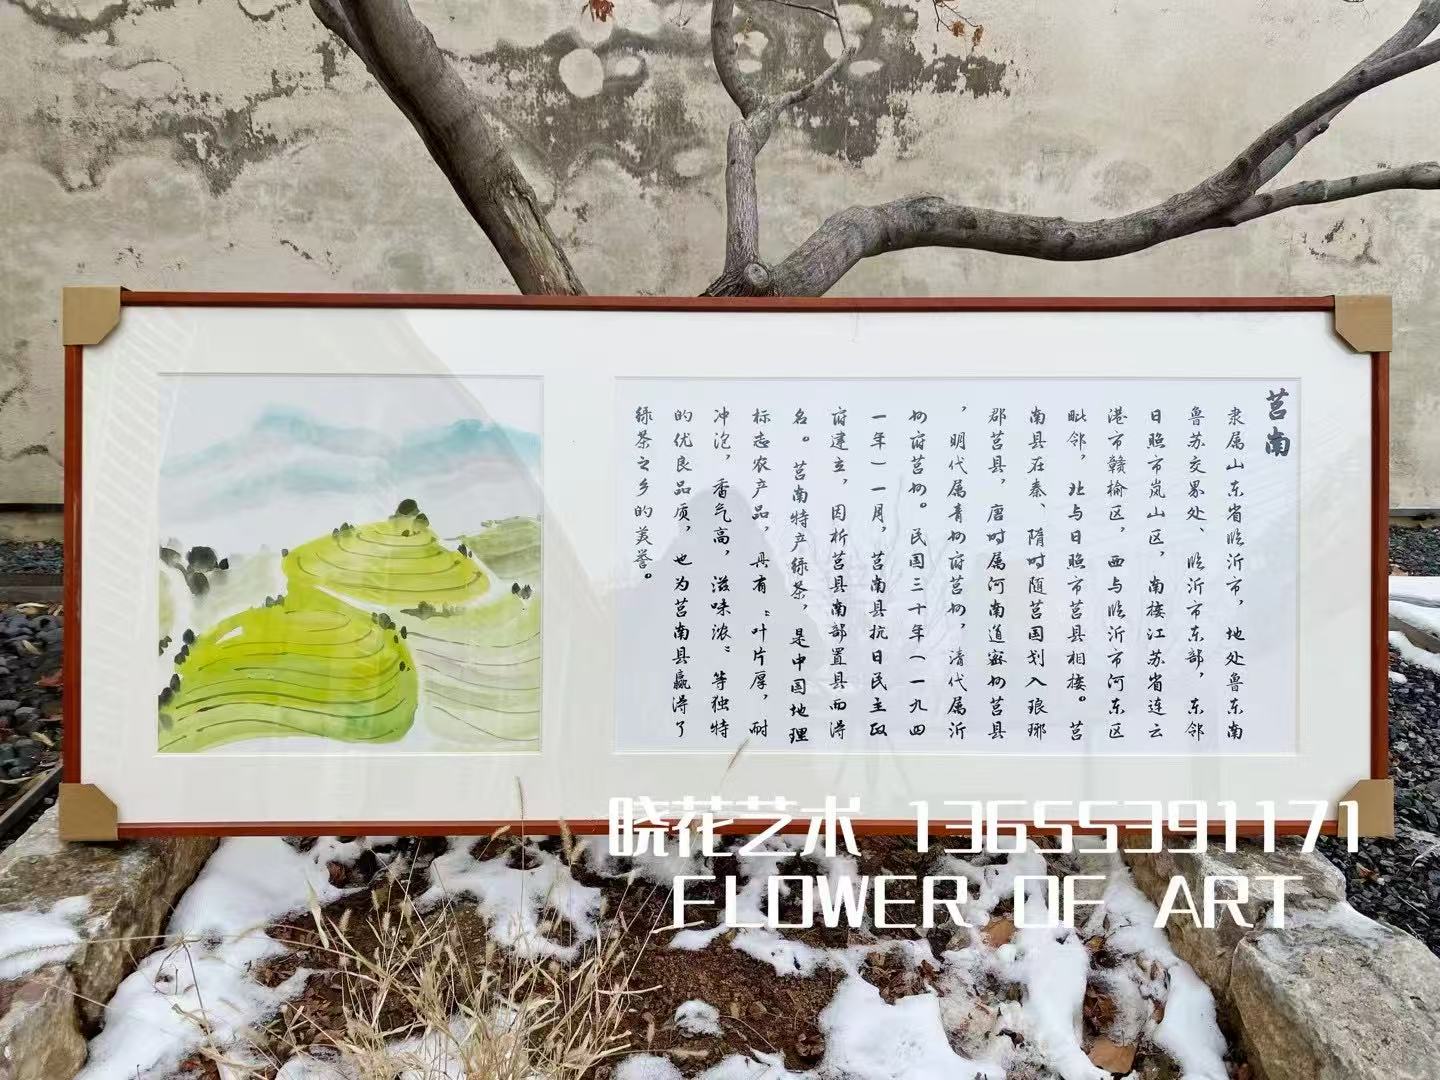 莒南
隶属山东省临沂市，地处鲁东南
鲁苏交界处、临沂市东部，东邻
日照市岚山区，南接江苏省连云
港市赣榆区，西与临沂市河东区
毗邻，北与日照市莒县相接。莒
南县在秦、隋时随莒国划入琅琊
郡莒县，唐时属河南道密州莒县
，明代属青州府莒州，清代属沂
州府莒州。民国三十年（一九四
一年）一一月，莒南县抗日民主政
府建立，因析莒县南部置县而得
名。莒南特产绿茶，是中国地理
标志农产品，具有“叶片厚，耐
冲泡，香气高，滋味浓”等独特
的优良品质，也为莒南县赢得了
绿茶之乡的美誉。
晓花艺术 13655391171
FLOWER OF ART